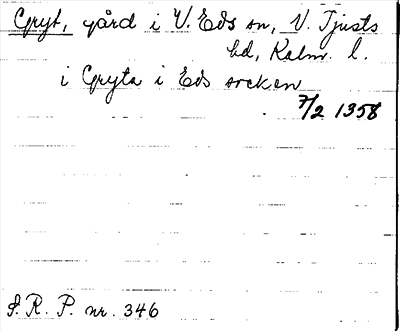 Gryt, gård i V. Eds sn, V. Tjusts
hd, Kalm. l.
i Gryta i Eds socken
7/2 1358
S. R. P. nr. 346